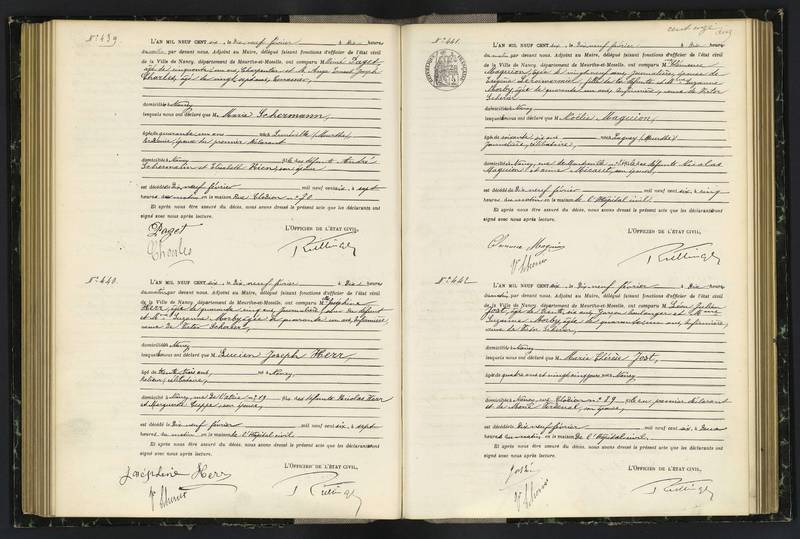 N° 439
L'AN MIL NEUF CENT six, le Dix neuf février à Dix heures
du matin par devant nous, Adjoint au Maire, délégué faisant fonctions d'officier de l'état civil
de la Ville de Nancy, département de Meurthe-et-Moselle, ont comparu M René Daget
âgé de cinquante un ans, Charpentier et le Ange Ernest Joseph
Charles, âgé de vingt
domiciliés Nancy
lesquels nous ont déclaré que Marie Schermann,
âgée de quarante un ans née à Lunéville (Meurthe)
épouse du premier déclarant
domiciliée à Nancy fille de défunts André
Schermann et Elisabeth Hien, son épouse
est décédée Dix neuf février mil neuf cent six, à sept
heures du matin en la maison Rue Clodion n° 70
Et après nous être assuré du décès, nous avons dressé le présent acte que les déclarants ont
signé avec nous après lecture.
L'OFFICIER DE L'ÉTAT CIVIL,
Daget
Charles
N° 440
L'AN MIL NEUF CENT six, le Dix neuf février à Dix heures
du matin par devant nous, Adjoint au Maire, délégué faisant fonctions d'officier de l'état civil
de la Ville de Nancy, département de Meurthe-et-Moselle, ont comparu M Joséphine
Herr, âgée de quarante cinq ans, journalière, sœur du défunt
et M Suzanne Morby, âgée de quarante un ans, Infirmière,
veuve de Victor Scherer,
domiciliés Nancy
lesquels nous ont déclaré que M Lucien Joseph Herr,
âgé de trente trois ans, né à Nancy,
célibataire,
domicilié à Nancy, rue n° 19 fils des défunts Nicolas Herr
et Marguerite son épouse,
est décédé le Dix neuf février mil neuf cent six, à sept
heures du matin en la maison de l'Hôpital civil
Et après nous être assuré du décès, nous avons dressé le présent acte que les déclarants ont
signé avec nous après lecture.
L'OFFICIER DE L'ÉTAT CIVIL,
Joséphine Herr
Vve Scherer
N° 441
L'AN MIL NEUF CENT six, le Dix neuf février à Dix heures
du matin par devant nous, Adjoint au Maire, délégué faisant fonctions d'officier de l'état civil
de la Ville de Nancy, département de Meurthe-et-Moselle, ont comparu M Clémence
Maguion, âgée de vingt neuf ans, journalière, épouse de
fille de la défunte et M Suzanne
Morby, âgée de quarante un ans, Infirmière, veuve de Victor
Scherer
domiciliés Nancy
lesquels nous ont déclaré que M Maguion,
âgée de soixante six ans née à Lagney (Meurthe)
Journalière, célibataire,
domiciliée à Nancy, rue de fille des défunts Nicolas
Maguion et son épouse,
est décédée Dix neuf février mil neuf cent six, à cinq
heures du matin en la maison de l'Hôpital civil
Et après nous être assuré du décès, nous avons dressé le présent acte que les déclarants ont
signé avec nous après lecture.
L'OFFICIER DE L'ÉTAT CIVIL,
Clémence Maguion
Vve Scherer
N° 442
L'AN MIL NEUF CENT six, le Dix neuf février à Dix heures
du matin, par devant nous, Adjoint au Maire, délégué faisant fonctions d'officier de l'état civil
de la Ville de Nancy, département de Meurthe-et-Moselle, ont comparu M Léon Julien
Jost, âgé de trente six ans, Garçon boulanger et Mme
Suzanne Morby, âgée de quarante un ans, Infirmière,
veuve de Victor Scherer,
domiciliés Nancy
lesquels nous ont déclaré que M Marie Thérèse Jost,
âgée de quatre ans et vingt cinq jours née à Nancy
domiciliée à Nancy, rue Clodion n° 89 fille du premier déclarant
et de Marie son épouse,
est décédée le Dix neuf février mil neuf cent six, à Deux
heures du matin, en la maison de l'Hôpital civil.
Et après nous être assuré du décès, nous avons dressé le présent acte que les déclarants ont
signé avec nous après lecture.
L'OFFICIER DE L'ÉTAT CIVIL,
Jost
Vve Scherer